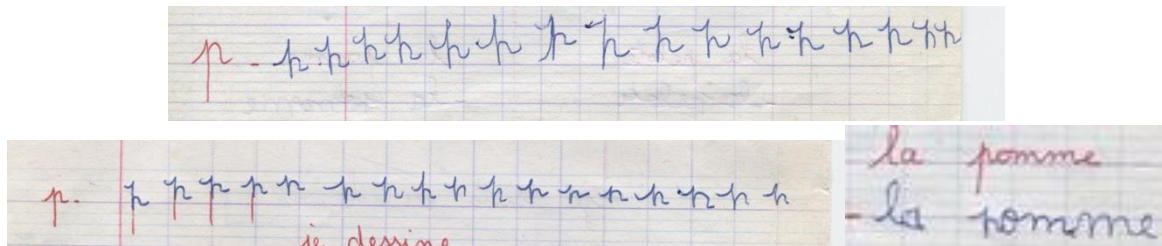 p - p p p p p p p p p p p p p p p p
p. p p p p p p p p p p p p p p p p p
je dessine
la pomme
- la pomme